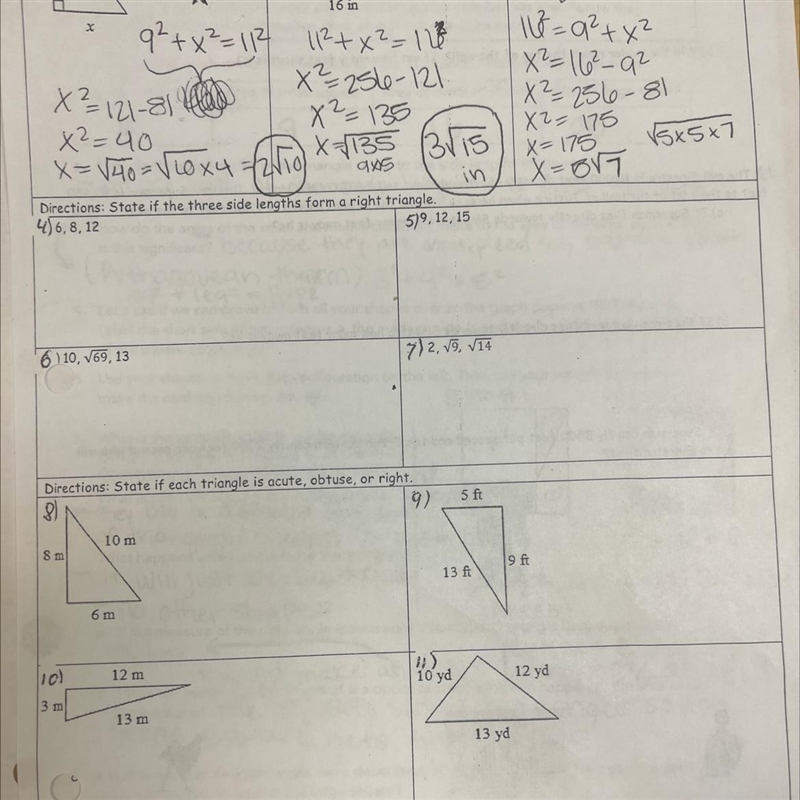 16 in
x
9² + x² = 11²
x² = 121 - 81
x² = 40
x = √40 = √10 x 4 = 2√10
11² + x² = 16²
x² = 256 - 121
x² = 135
x = √135
9x15
3√15
in
16² = 9² + x²
x² = 16² - 9²
x² = 256 - 81
x² = 175
x = 175
√5x5x7
x = 5√7
Directions: State if the three side lengths form a right triangle.
4) 6, 8, 12
5) 9, 12, 15
6) 10, √69, 13
7) 2, √9, √14
Directions: State if each triangle is acute, obtuse, or right.
8)
10 m
8 m
6 m
9)
5 ft
9 ft
13 ft
10)
12 m
3 m
13 m
11)
10 yd
12 yd
13 yd